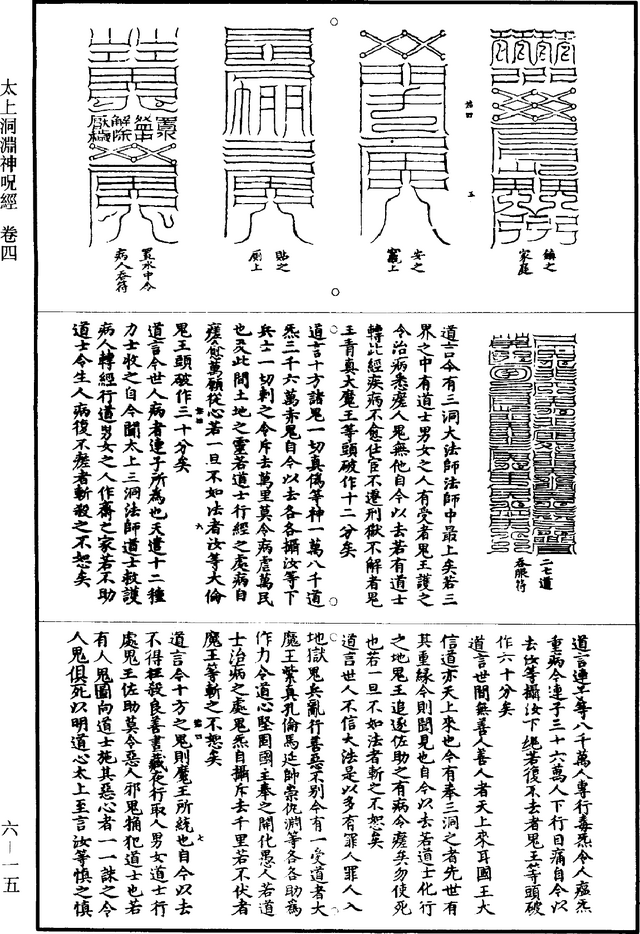 太上洞淵神呪經 卷四
六—一五
鎮之
家庭
安之
竈上
貼之
廁上
置水中令
病人吞符
二七道
吞服符
道言今有三洞大法師法師中最上矣若三
界之中有道士男女之人有受者鬼王護之
令治病悉瘥人鬼無他自今以去若有道士
轉此經疾病不愈仕臣不遷刑獄不解者鬼
王青真大魔王等頭破作十二分矣
道言十方諸鬼一切真偽等神一萬八千道
炁三千六萬赤鬼自今以去各各攝汝等下
兵士一切剌之令斥去萬里莫令病虐萬民
也及此間土地之靈若道士行經之處病自
瘥愈萬願從心若一旦不如法者汝等大倫
鬼王頭破作三十分矣
道言令世人病者連子所為也天遣十二種
力士收之自今聞太上三洞法師道士救護
病人轉經行道男女之人作齋之家若不助
道士令生人病復不瘥者斬殺之不恕矣
道言連工等八千萬人專行毒炁令人瘟炁
重病今連子三十六萬人下行日痛自今以
去汝等攝汝下絕若復不去者鬼王等頭破
作六十分矣
道言世間無善人善人者天上來耳國王大
信道亦天上來也今有奉三洞之者先世有
其重緣今則聞見也自今以去若道士化行
之地鬼王追逐佐助之有病令瘥矣勿使死
也若一旦不如法者斬之不恕矣
道言世人不信大法是以多有罪人罪人入
地獄鬼兵亂行善惡不別今有一受道者大
魔王繁真孔倫馬延師崇倪淵等各各助為
作力令道心堅固國主奉之開化愚人若道
士治病之處鬼炁自攝斥去千里若不伏者
魔王等斬之不恕矣
道言今十方之鬼則魔王所統也自今以去
不得枉殺良善書藏夜行取人男女道士行
處鬼王佐助莫令惡人邪鬼捅犯道士也若
有人鬼圖向道士施其惡心者一一誅之令
人鬼俱死以明道心太上至言汝等慎之慎